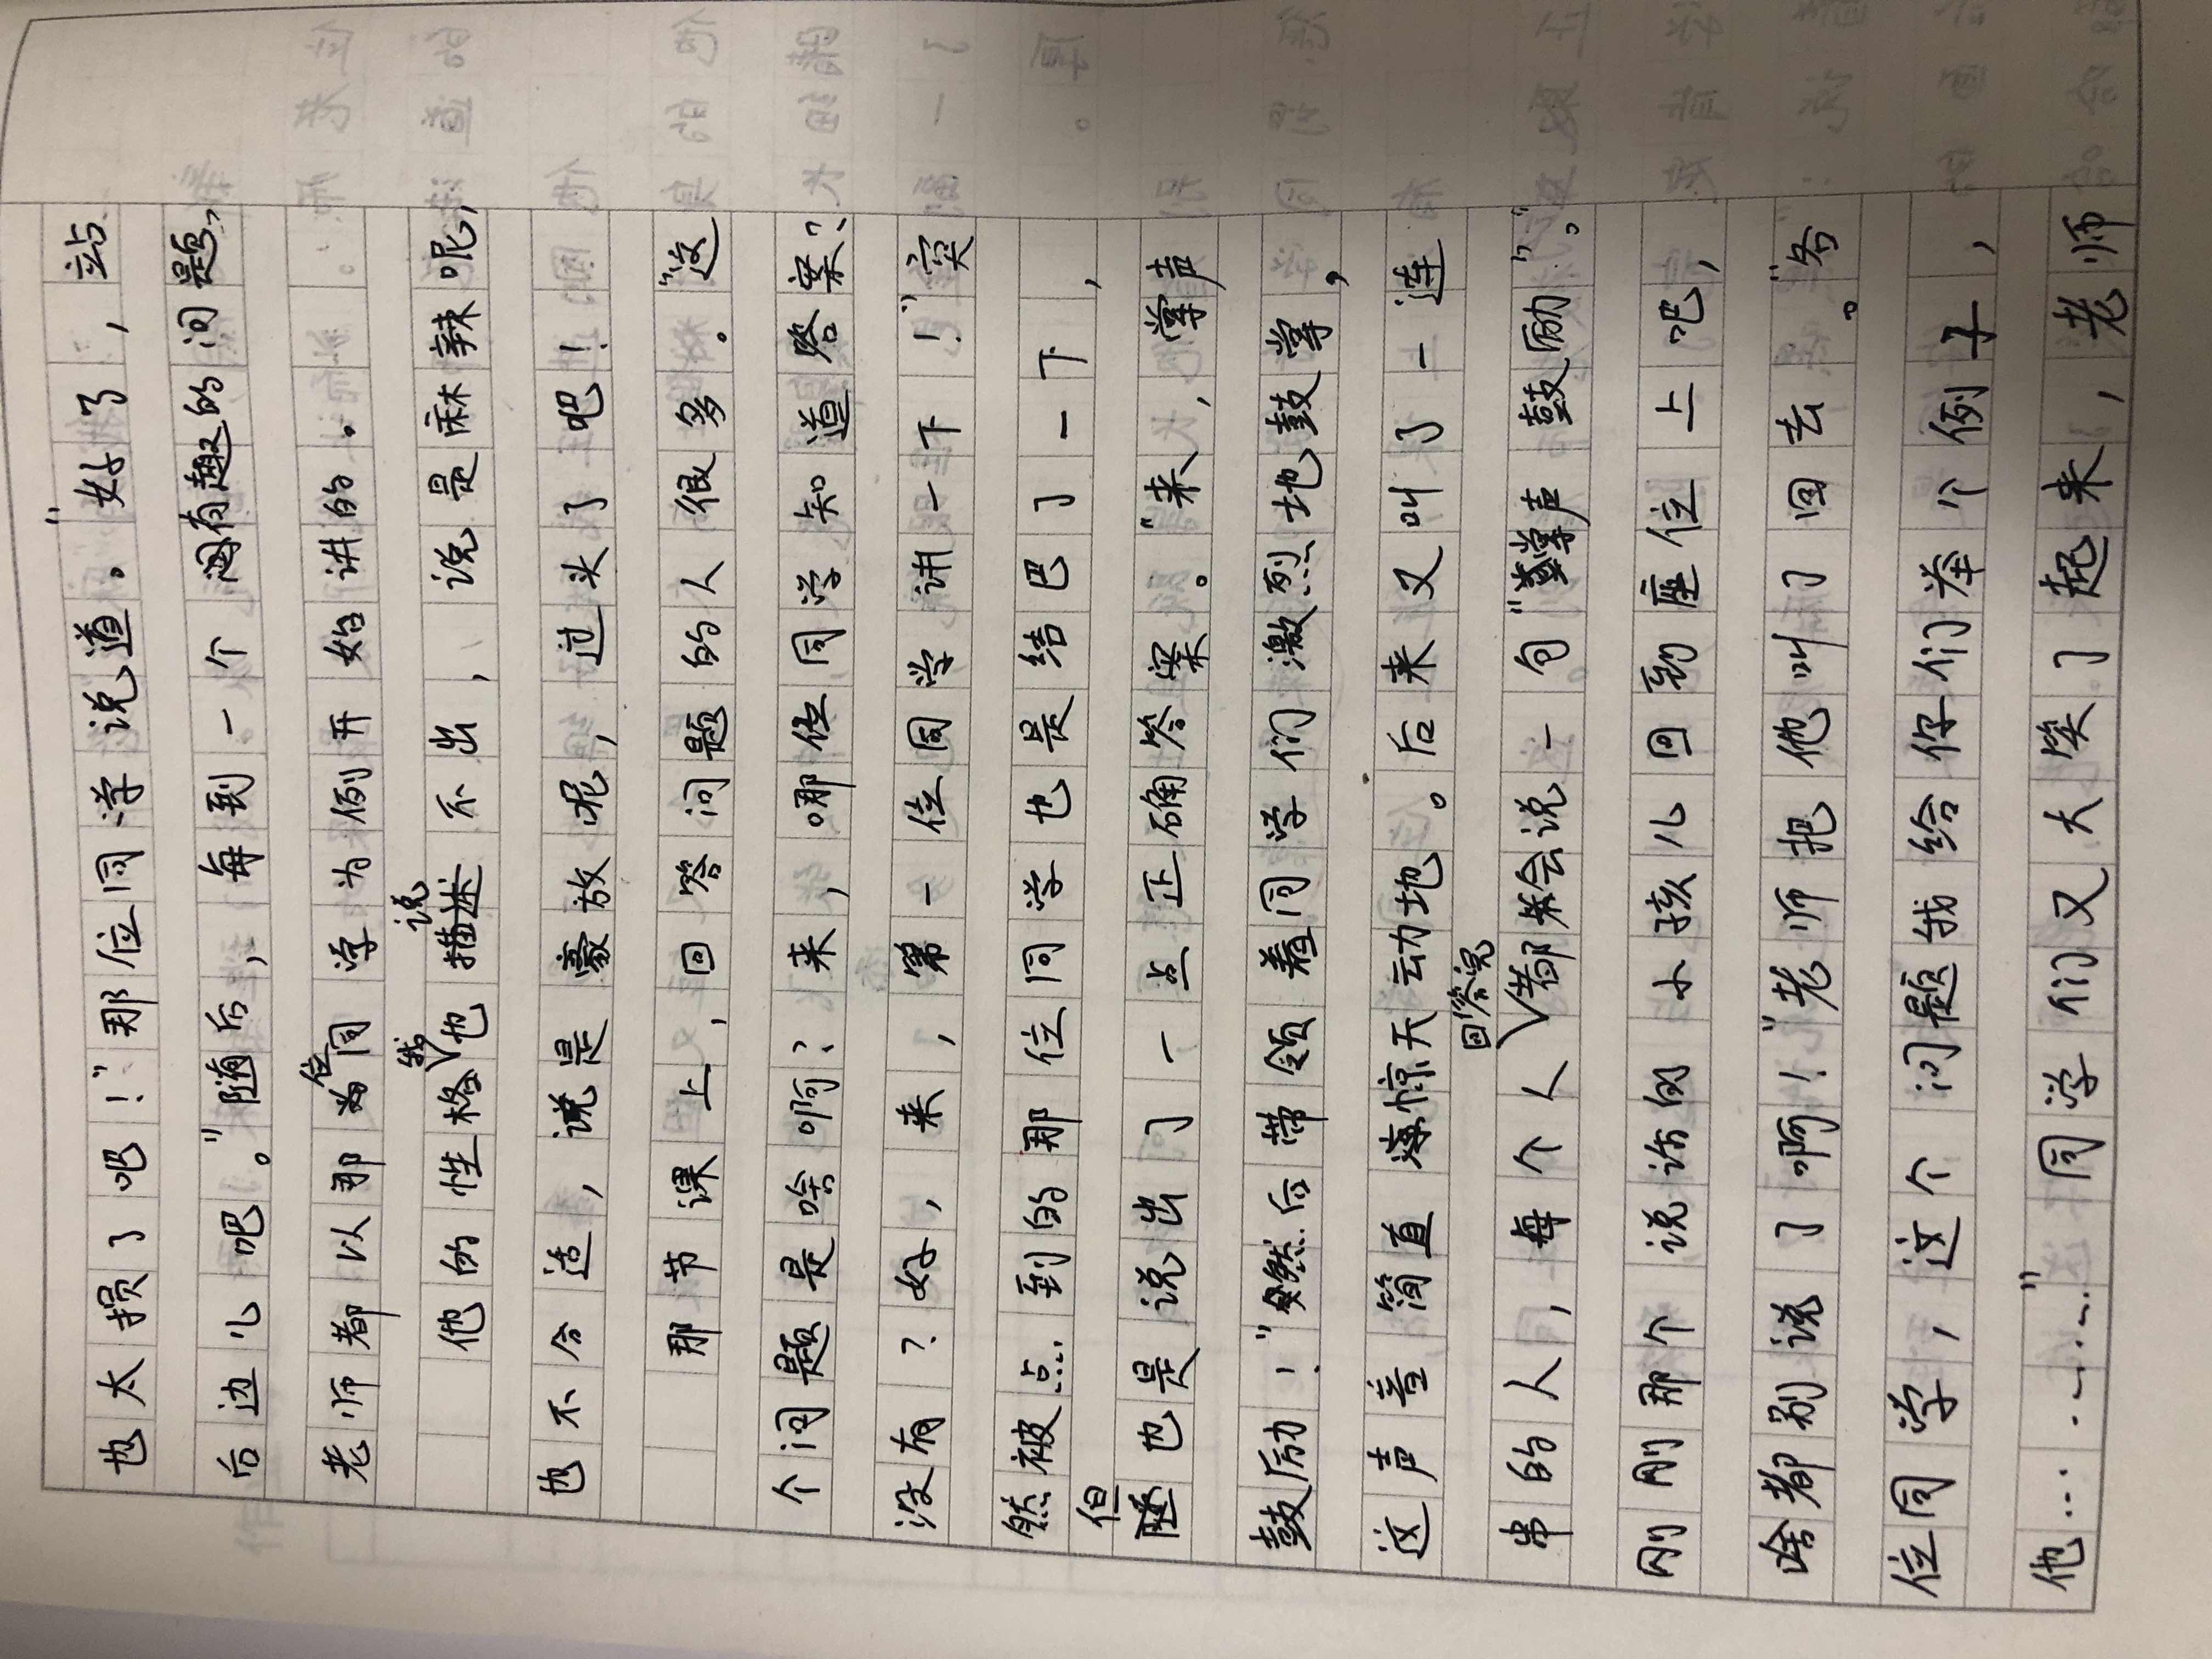 也太损了吧！”那位同学说道。“好了，站
后边儿吧。”随后，每到一个有趣的问题，
老师都以那位同学为例开始讲的。
他的性格我也说不出，说是麻辣呢，
也不合适，说是豪放呢，过头了吧！
那节课上，回答问题的人很多。“这
个问题是啥啊？来，哪位同学知道答案？
没有？好，来，第一位同学讲一下！”突
然被点到的那位同学也是结巴了一下，
但也是说出了一点正确答案。“来，掌声
鼓励！”然后带领着同学们激烈地鼓掌，
这声音简直惊天动地。后来又叫了一连
串的人，每个人回答完都会说一句“掌声鼓励”。
刚刚那个说话的小孩儿回到座位上吧，
啥都别说了啊！”老师把他叫了回去。“各
位同学，这个问题我给你们举个例子，
他……”同学们又大笑了起来，老师